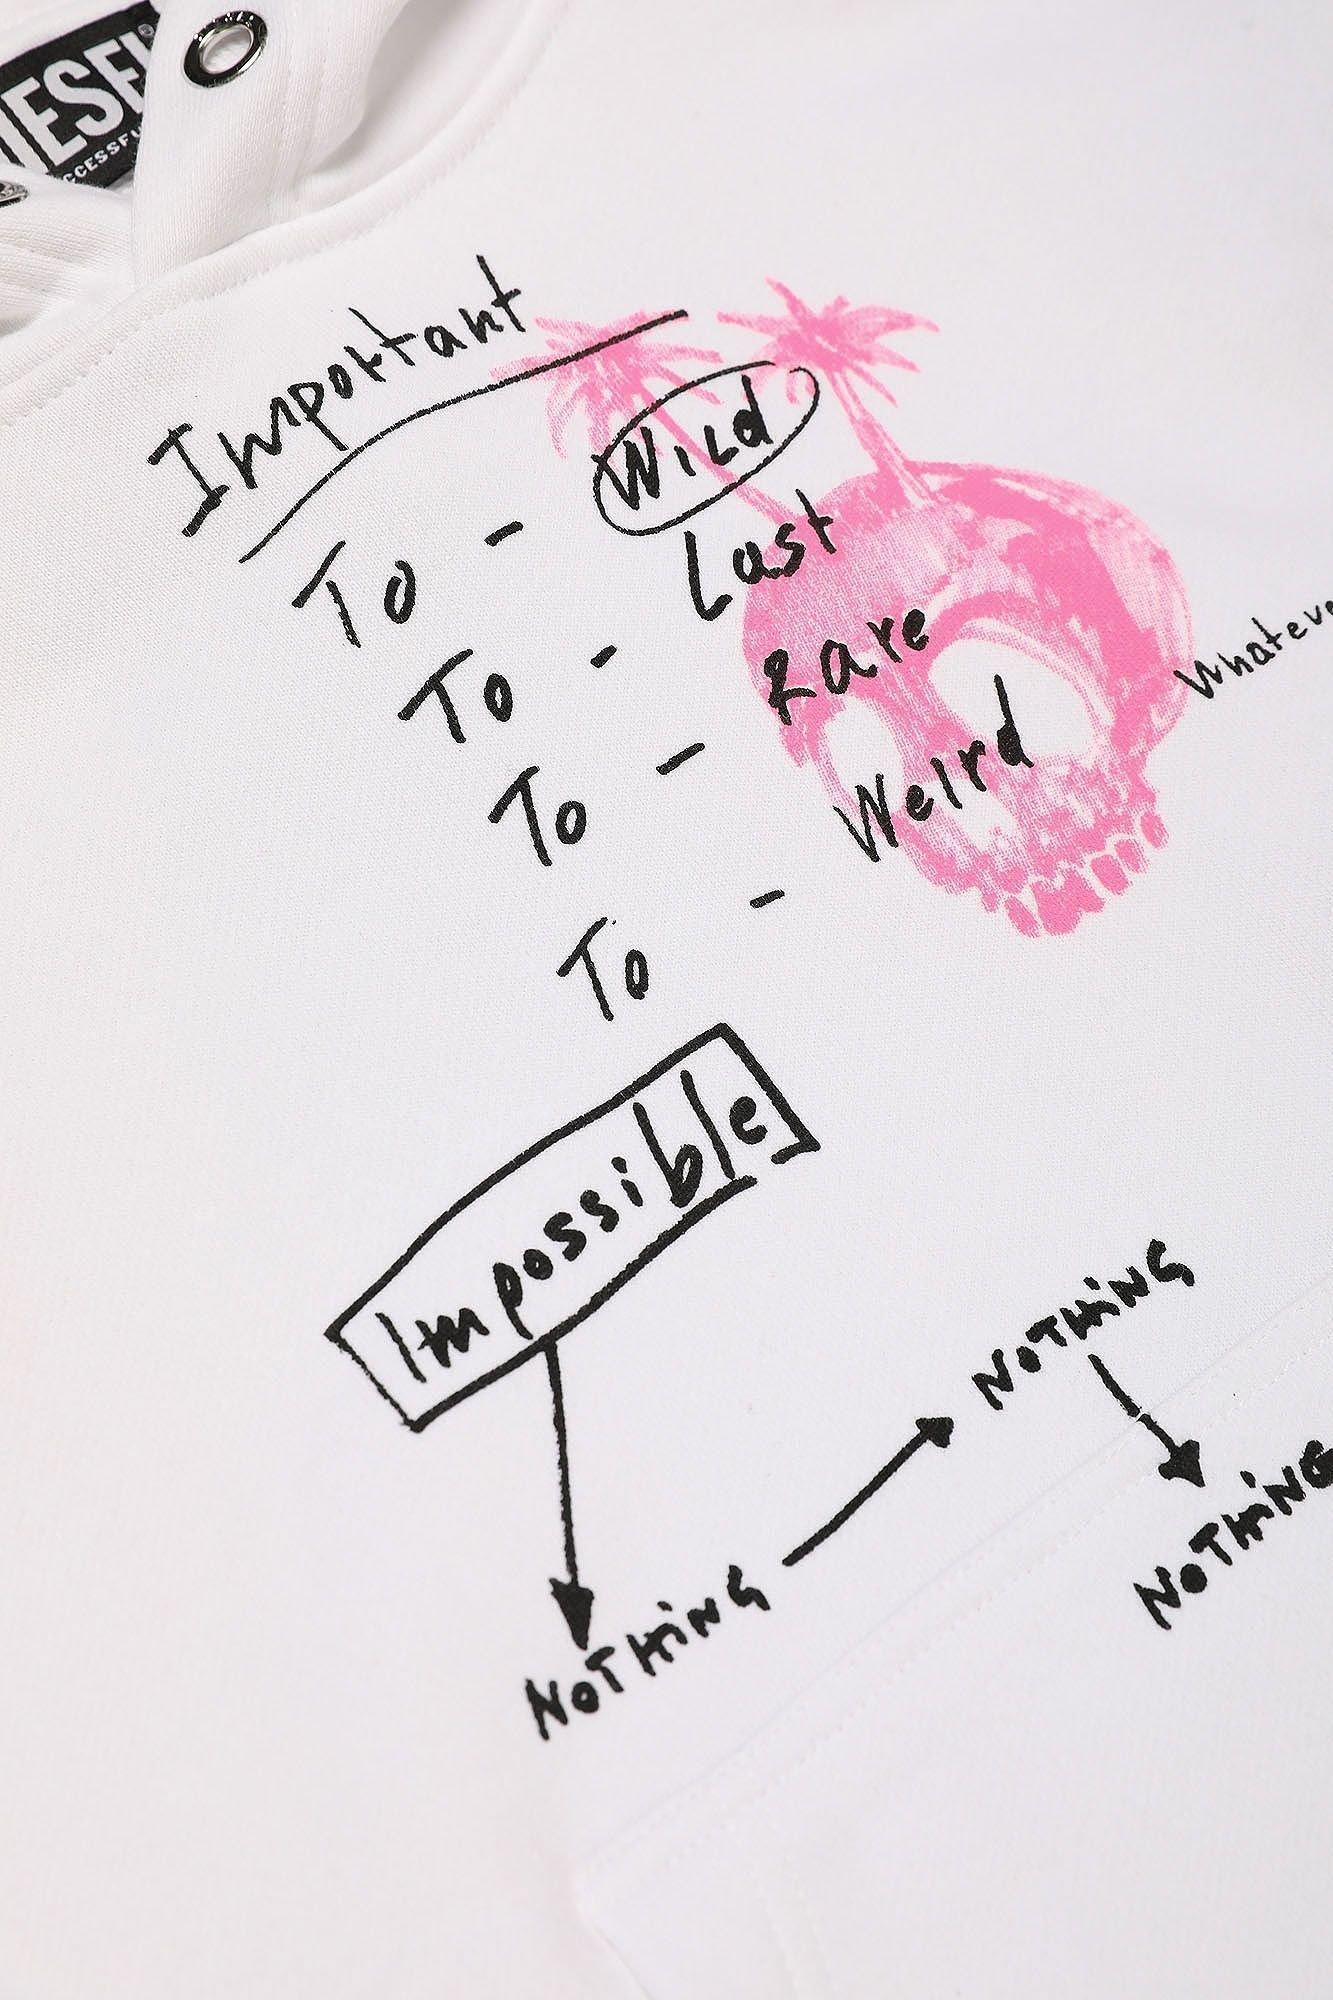 IESEL
CCESSFU
Important
To - Wild
To - Last
To - Rare
To - Weird
Whateve
Impossible
NOTHiNG
NOTHiNG
NOTHiNG